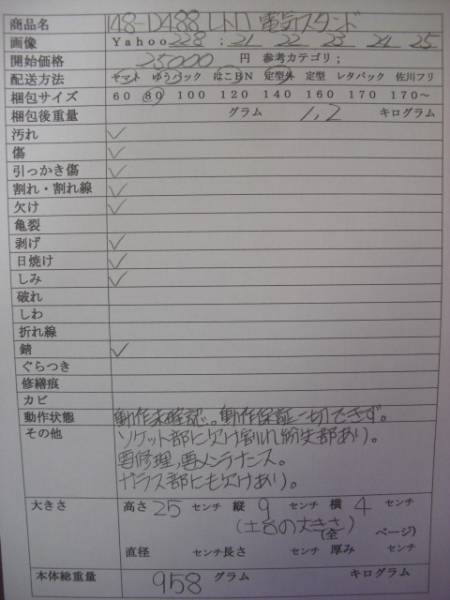 商品名 148-D488 レトロ 電気スタンド
画像 Yahoo 228 ; 21 22 23 24 25
開始価格 25000 円 参考カテゴリ;
配送方法 ヤマト ゆうパック はこBN 定型外 定型 レタパック 佐川フリ
梱包サイズ 60 80 100 120 140 160 170 170〜
梱包後重量 グラム 1,2 キログラム
汚れ ✓
傷 ✓
引っかき傷 ✓
割れ・割れ線 ✓
欠け ✓
亀裂
剥げ ✓
日焼け ✓
しみ ✓
破れ
しわ
折れ線
錆 ✓
ぐらつき
修繕痕
カビ
動作状態 動作未確認。動作保証一切できず。
その他 ソケット部に欠け割れ紛失部あり。
要修理,要メンテナンス。
ガラス部にも欠けあり。
大きさ 高さ 25 センチ 縦 9 センチ 横 4 センチ
(土台の大きさ)
(全 ページ)
直径 センチ 長さ センチ 厚み センチ
本体総重量 958 グラム キログラム